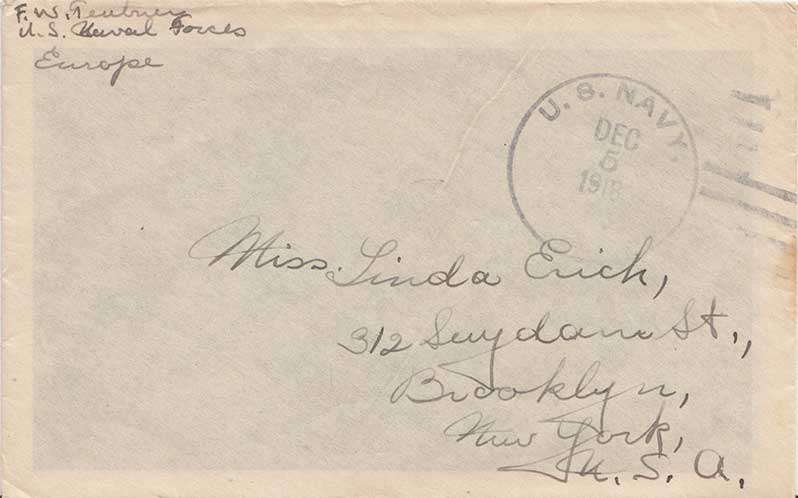 F. W. Teubner
U. S. Naval Forces
Europe
U. S. NAVY.
DEC
5
1918
Miss. Linda Erich,
312 Suydam St.,
Brooklyn,
New York,
U. S. A.